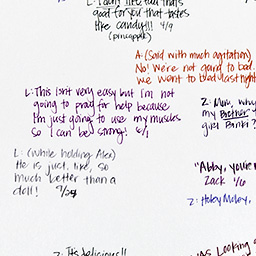 good for you that tastes
like candy!!! 4/9
(pineapple)
A: (Said with much agitation)
No! We're not going to bed.
We went to bed last night
L: This isn't very easy but I'm not
going to pray for help because
I'm just going to use my muscles
so I can be strong! 6/1
Z: Mom, why
my Brother
girl Banki?
L: (while holding Alex)
He is just like, so
much better than a
doll! 9/24
"Abby, you're
Zack 4/6
Z: Holey Moley,
Z: It's delicious!!
was Looking